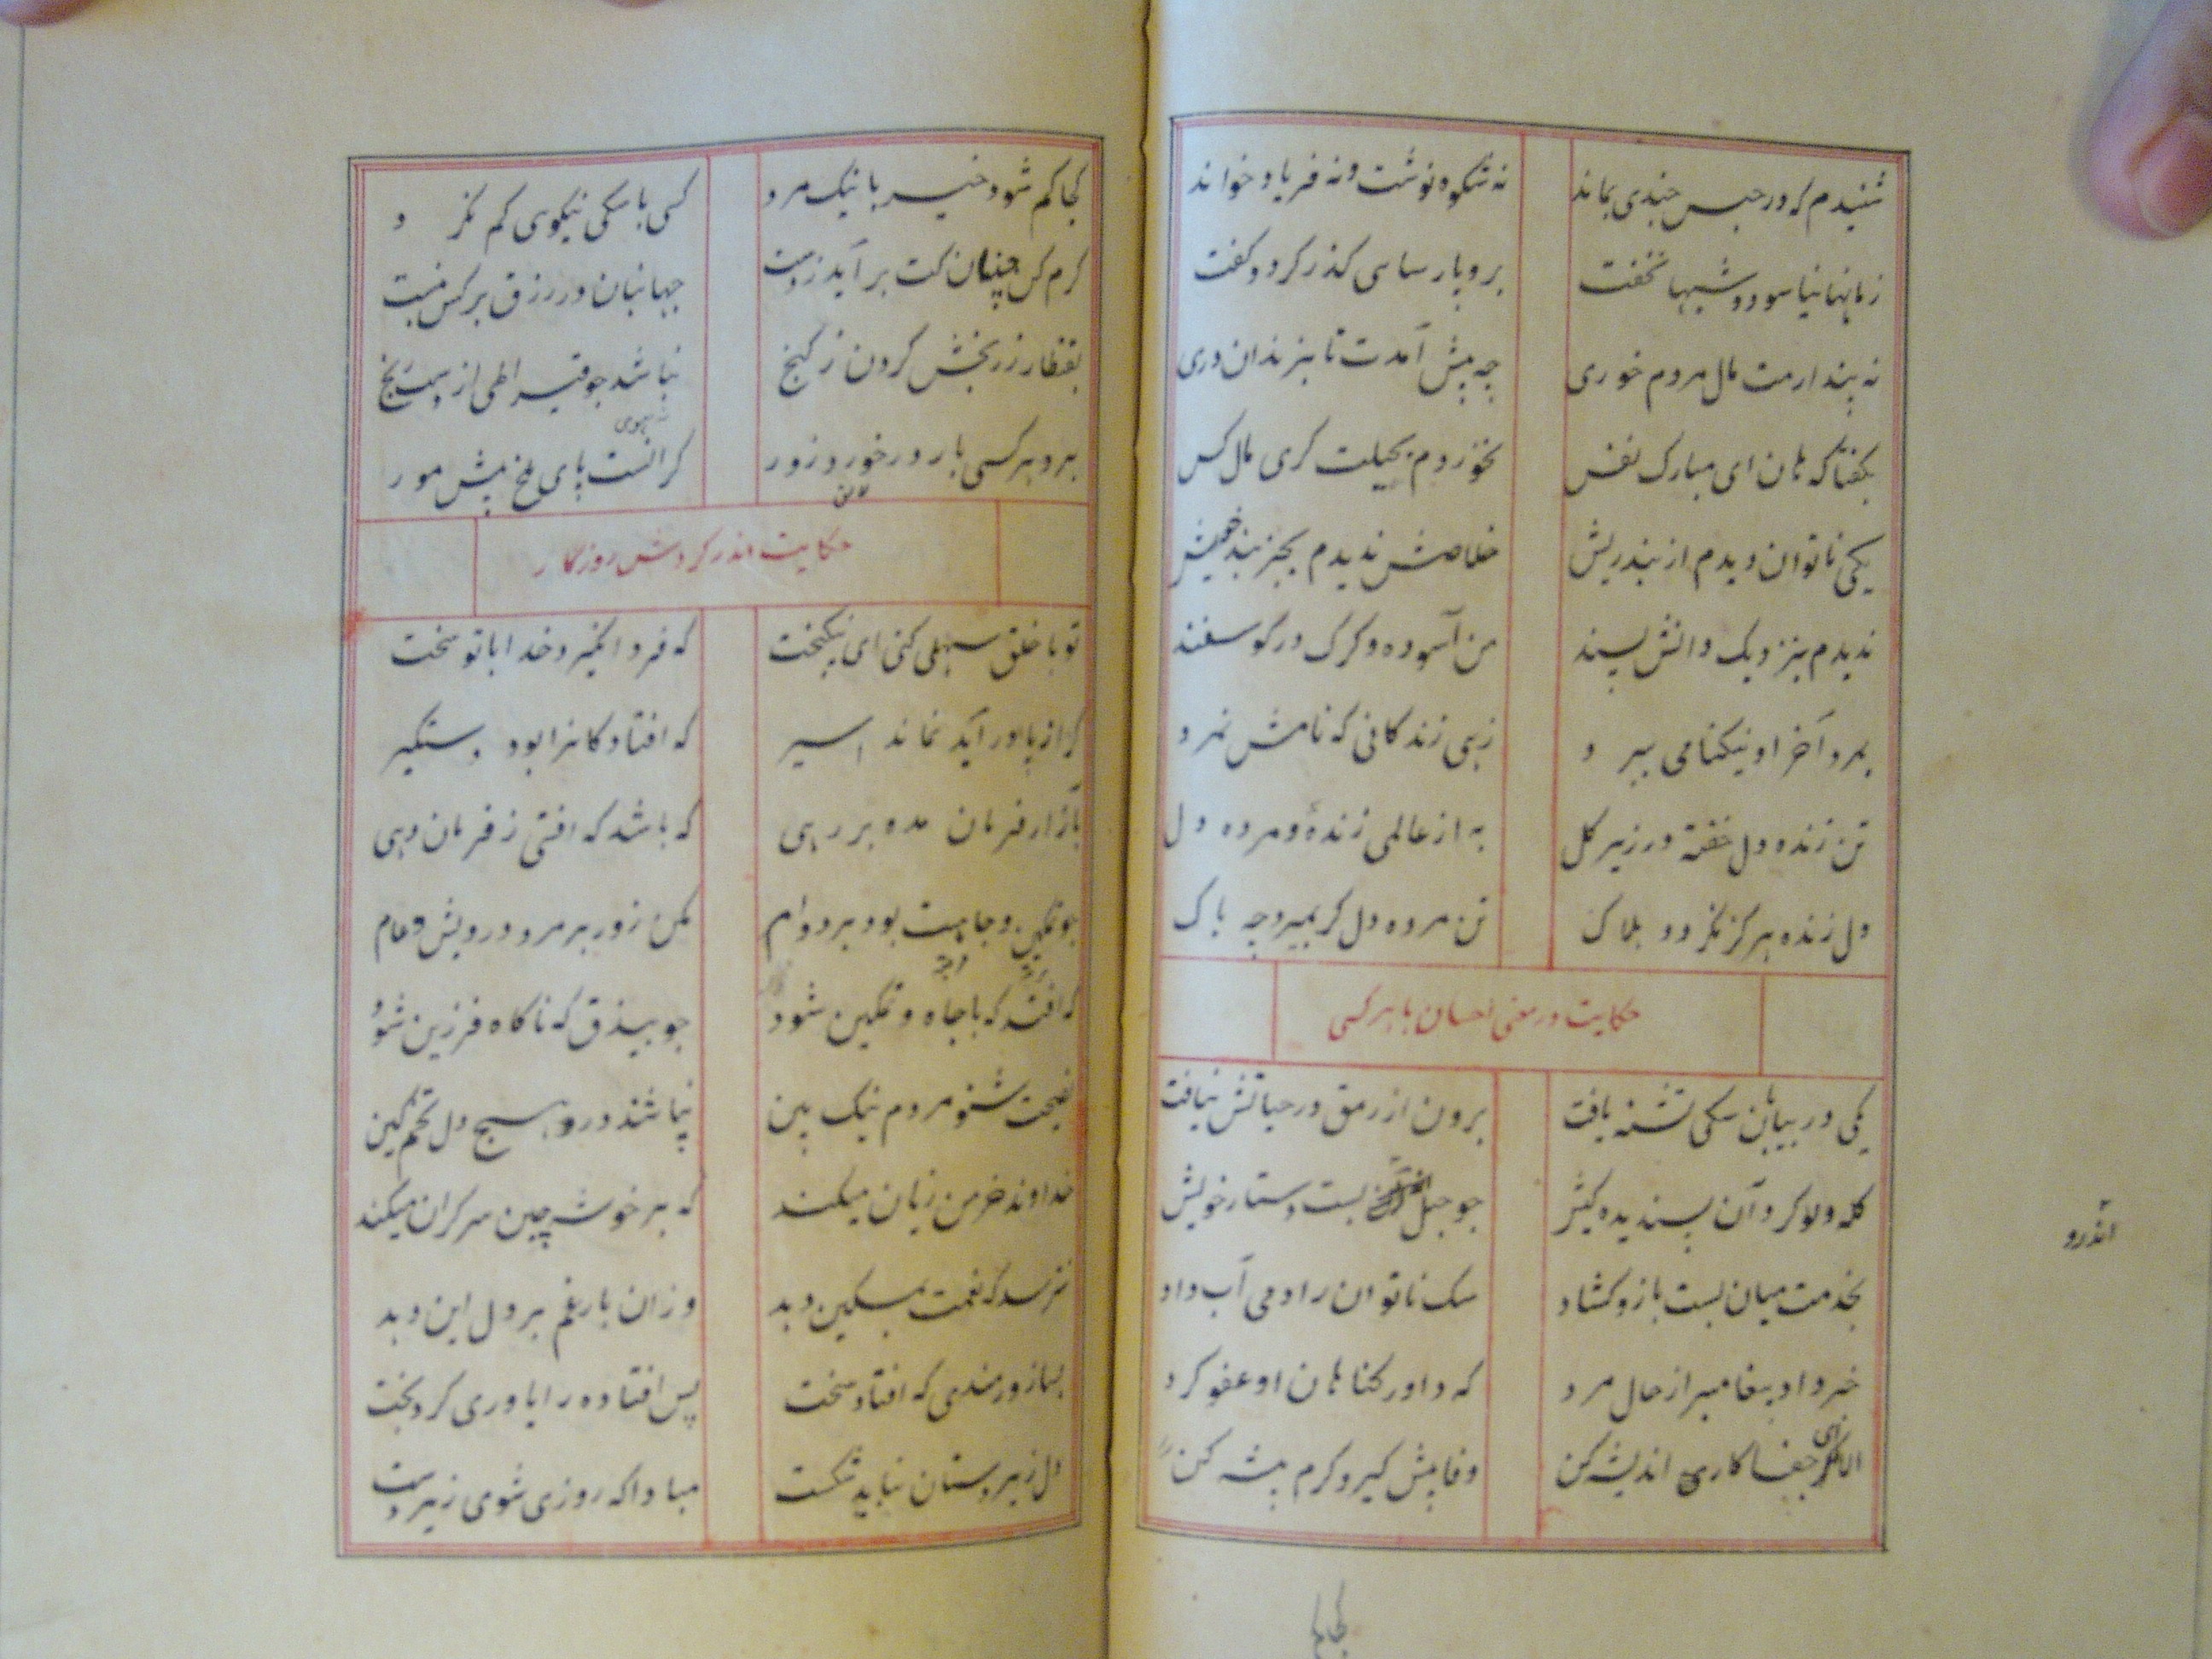 شنیدم که در حبس چندی بماند نه شکوه نوشت و نه فریاد خواند
زمانها نیاسود و شبها نخفت برو پارسای گذر کرد و گفت
نه پندارمت مال مردم خوری چه پیش آمدت تا بزندان دری
بگفتا که هان ای مبارک نفس نخوردم بحیلت گری مال کس
یکی ناتوان دیدم از بند ریش خلاصش ندیدم بجز بند خویش
ندیدم بنزدیک دانش پسند من آسوده و گرگ در گوسفند
بمرد آخر او نیکنامی ببرد زهی زندگانی که نامش نمرد
تن زنده دل خفته در زیر گل به از عالمی زندهٔ و مرده دل
دل زنده هرگز نگردد هلاک تن مرده دل گر بمیرد چه باک
حکایت در معنی احسان با هر کسی
یکی در بیابان سگی تشنه یافت برون از رمق در حیاتش نیافت
کله دلو کرد آن پسندیده کیش چو حبل بست دستار خویش
بخدمت میان بست بازو گشاد سگ ناتوان را دمی آب داد
خبر داد پیغامبر از حال مرد که داور گناهان او عفو کرد
الا گر جفا کاری اندیشه کن وفا پیش گیر و کرم پیشه کن
اندرو
کجا کم
کجا کم شود خیر با نیک مرد کسی با سگی نیکوی کم نکرد
کرم کن چنان کت بر آید ز دست جهانبان در رزق بر کس نبست
بقنطار زر بخش کردن ز گنج نباشد چو قیراطی از دست رنج
برد هر کسی بار در خورد زور گرانست پای ملخ پیش مور
حکایت اندر گردش روزگار
تو با خلق سهلی کن ای نیکبخت که فردا نگیرد خدا با تو سخت
گر از پا در آید نماند اسیر که افتادگانرا بود دستگیر
بآزار فرمان مده بر رهی که باشد که افتی ز فرمان دهی
چو تمکین و جاهت بود بر دوام مکن زور بر مرد درویش و عام
که افتد که با جاه و تمکین شود چو بیذق که ناگاه فرزین شود
نصیحت شنو مردم نیک بین نپاشند در هیچ دل تخم کین
خداوند خرمن زیان میکند که بر خوشه چین سر گران میکند
نترسد که نعمت بمسکین دهد وزان بار غم بر دل این دهد
بسا زورمندی که افتاد سخت پس افتاده را یاوری کرد بخت
دل زیر دستان نباید شکست مبادا که روزی شوی زیر دست